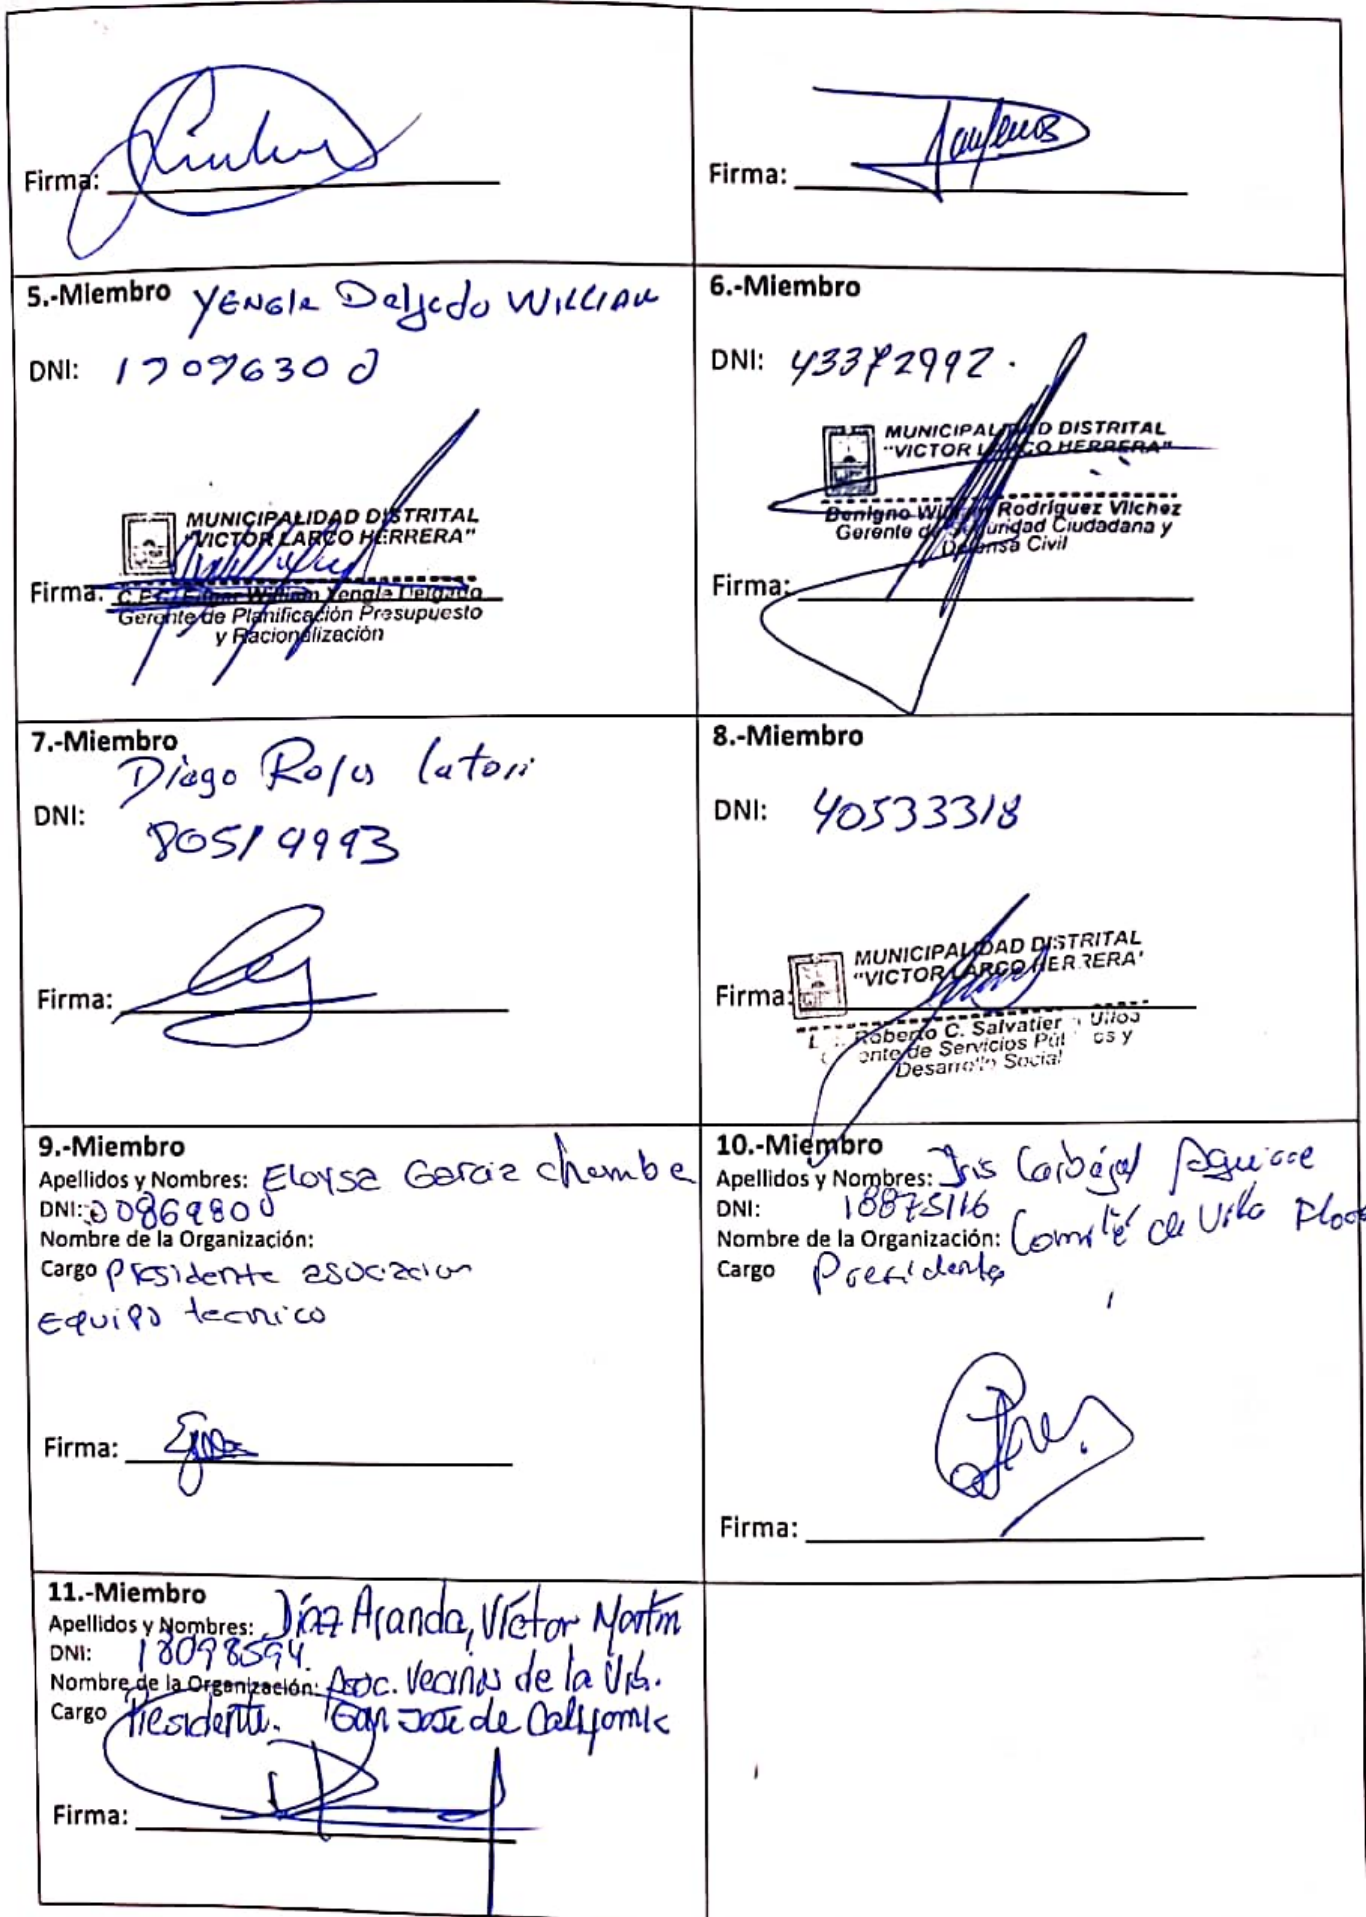 Firma:
Firma:
5.-Miembro YENGLE Delgado WILLIAM
DNI: 17096300
MUNICIPALIDAD DISTRITAL
"VICTOR LARCO HERRERA"
Firma: C.P.C. William Yengle Delgado
Gerente de Planificación Presupuesto
y Racionalización
6.-Miembro
DNI: 43372992.
MUNICIPALIDAD DISTRITAL
"VICTOR LARCO HERRERA"
Benigno William Rodríguez Vilchez
Gerente de Seguridad Ciudadana y
Defensa Civil
Firma:
7.-Miembro
Diego Rojas
DNI:
80519993
Firma:
8.-Miembro
DNI: 40533318
MUNICIPALIDAD DISTRITAL
"VICTOR LARCO HERRERA"
Firma:
Roberto C. Salvatier Ulloa
ente de Servicios Púb os y
Desarrollo Social
9.-Miembro
Apellidos y Nombres: Eloysa Garcia Chambe
DNI: 00869800
Nombre de la Organización:
Cargo Presidente asociacion
Equipo tecnico
Firma:
10.-Miembro
Apellidos y Nombres: Iris Carbajal Aguirre
DNI: 18875116
Nombre de la Organización: Comité de
Cargo Presidenta
Firma:
11.-Miembro
Apellidos y Nombres: Díaz Aranda, Víctor Martín
DNI: 18098594.
Nombre de la Organización: Asoc. Vecinos de la Urb.
Cargo Presidente. San José de California
Firma: